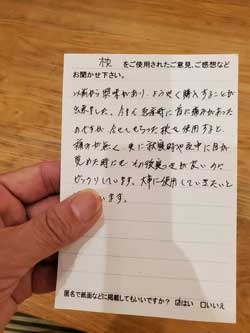 枕 をご使用されたご意見、ご感想など
お聞かせ下さい。
以前から興味があり、ようやく購入することが
出来ました。今まで起床時に首に痛みがあった
のですが、合せてもらった枕を使用すると、
痛みが無く、更に就寝時や夜中に目が
覚めた時にも
ビックリしています。大事に使用していきたいと
います。
匿名で紙面などに掲載してもいいですか? ☑はい □いいえ